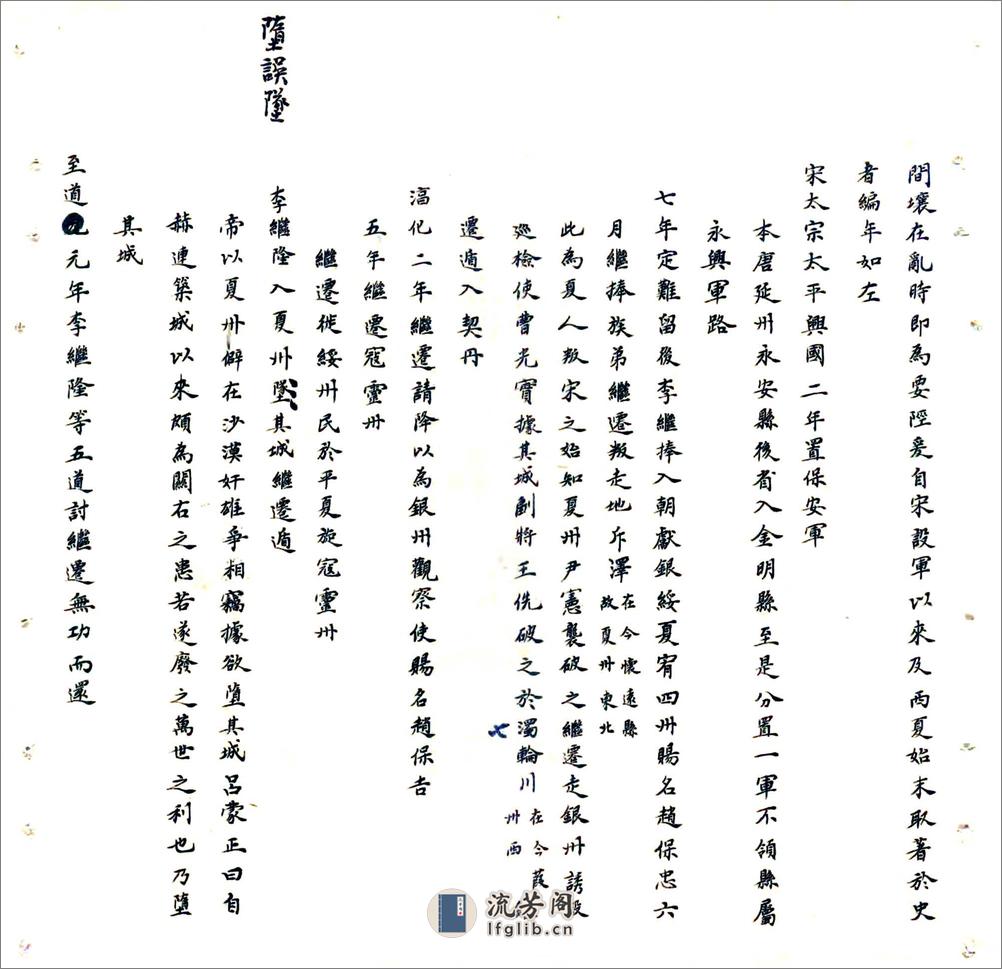 間壤在亂時即為要陘爰自宋設軍以來及西夏始末取著於史
者編年如左
宋太宗太平興國二年置保安軍
本唐延州永安縣後省入金明縣至是分置一軍不領縣屬
永興軍路
七年定難留後李繼捧入朝獻銀綏夏宥四州賜名趙保忠六
月繼捧族弟繼遷叛走地斥澤在今懷遠縣故夏州東北
此為夏人叛宋之始知夏州尹憲襲破之繼遷走銀州誘殺
巡檢使曹光實據其城副將王侁破之於濁輪川在今葭州西
遷遁入契丹
淳化二年繼遷請降以為銀州觀察使賜名趙保吉
五年繼遷寇靈州
繼遷徙綏州民於平夏旋寇靈州
墮誤墜
李繼隆入夏州墜其城繼遷遁
帝以夏州僻在沙漠奸雄爭相竊據欲墮其城呂蒙正曰自
赫連築城以來頗為關右之患若遂廢之萬世之利也乃墮
其城
至道元年李繼隆等五道討繼遷無功而還
流芳阁
lfglib.cn